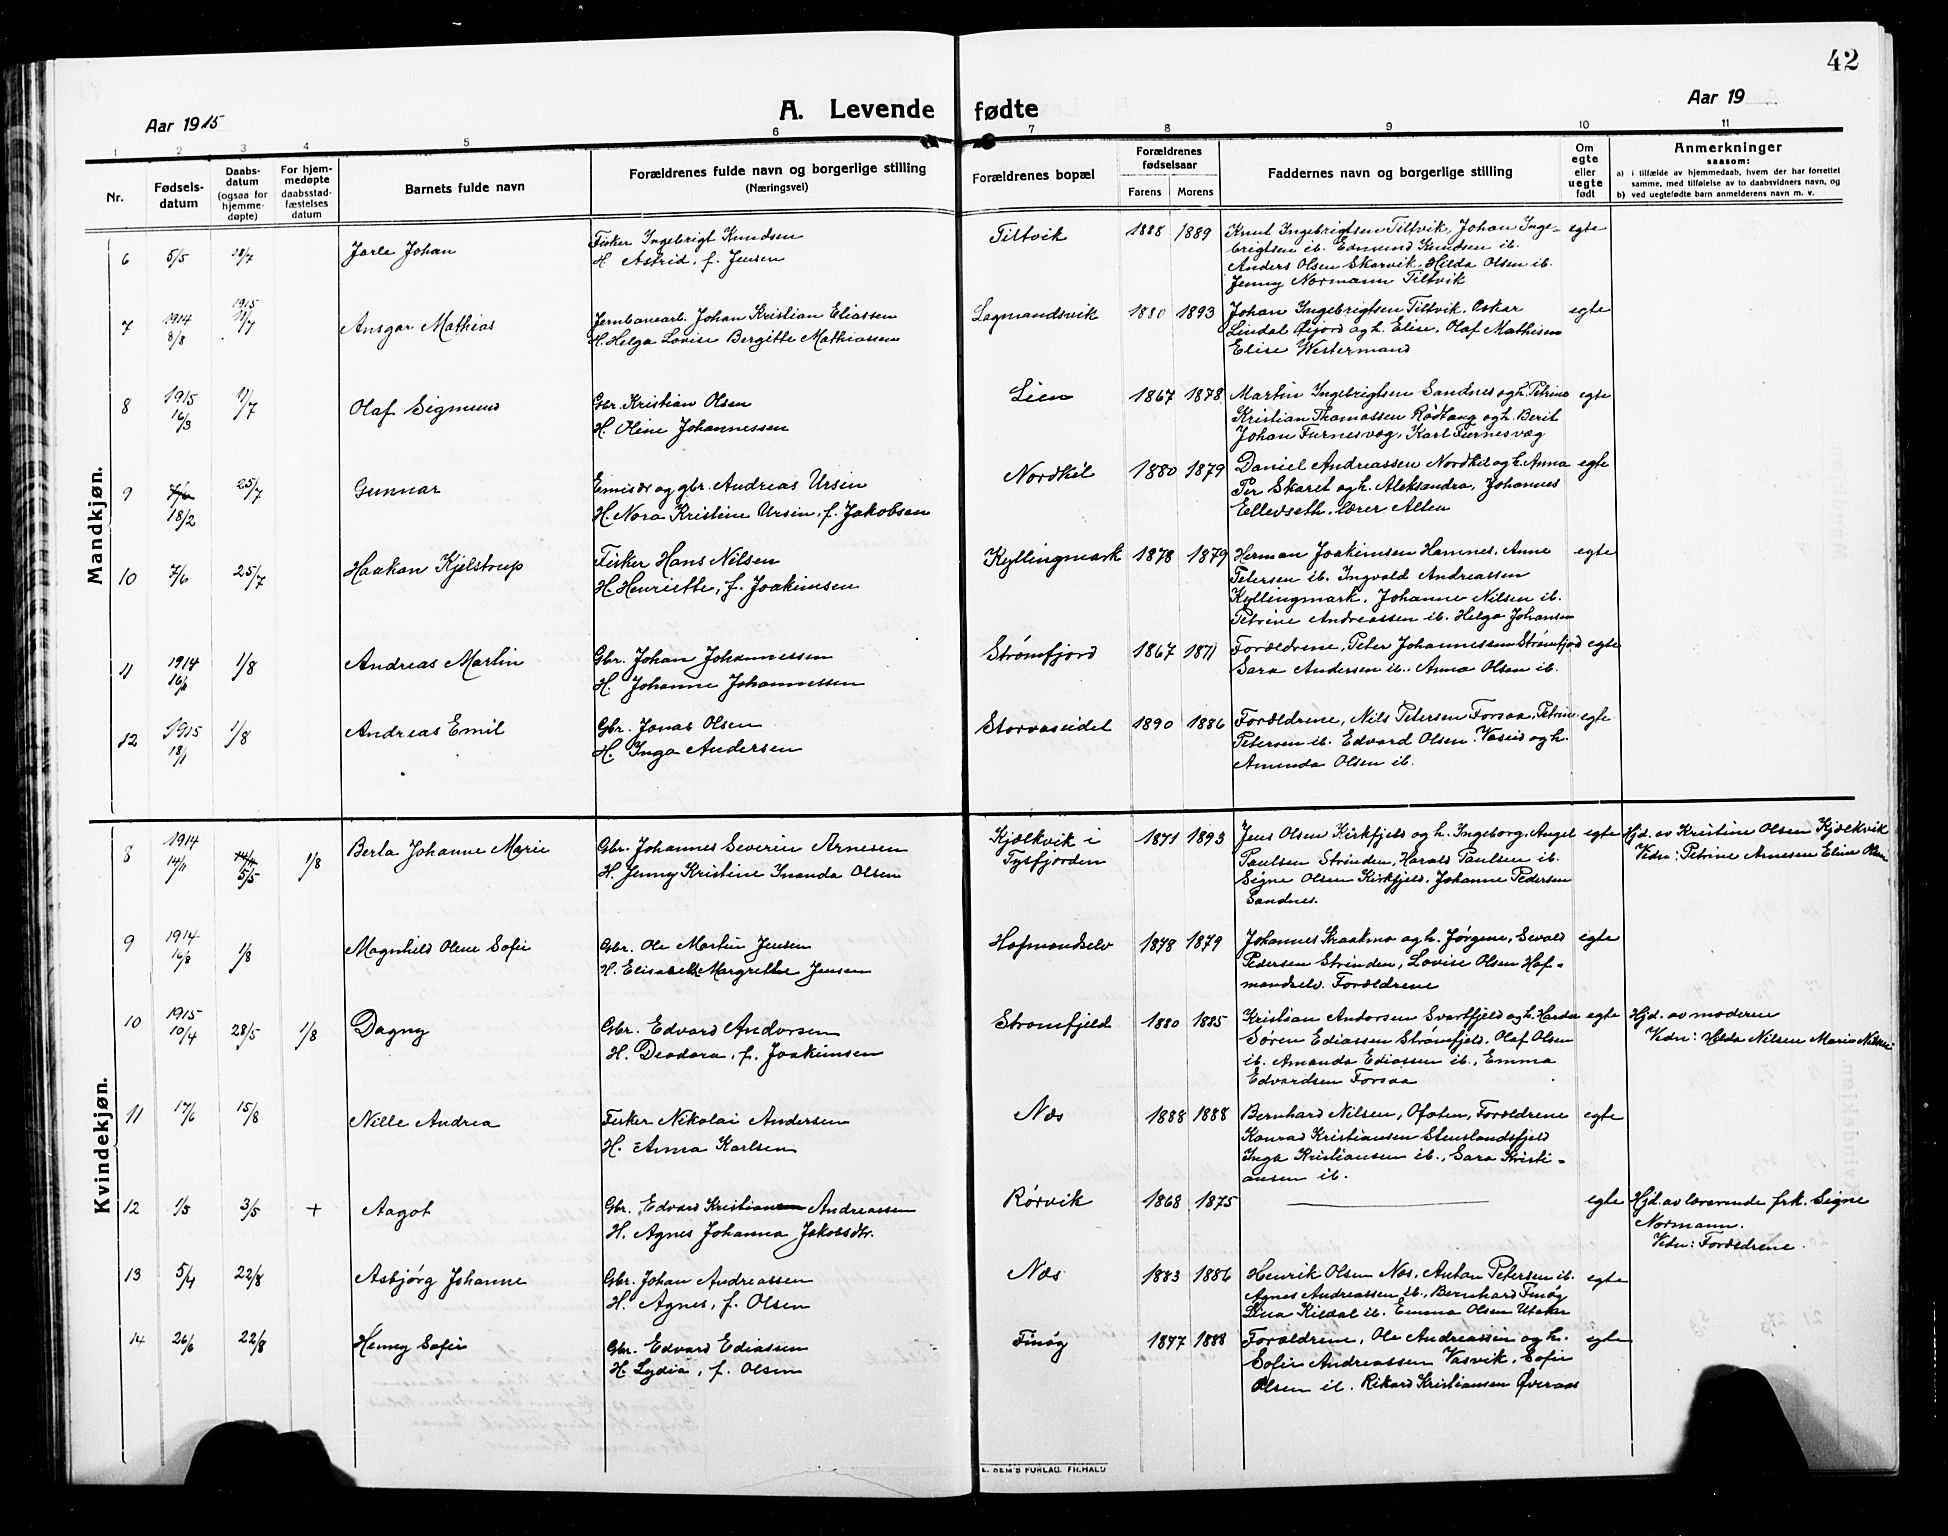 42
Aar 1915
A. Levende fødte
Aar 19
1 2 3 4 5 6 7 8 9 10 11
Nr.
Fødselsdatum
Daabsdatum (ogsaa for hjemmedøpte)
For hjemmedøpte daabsstadfæstelses datum
Barnets fulde navn
Forældrenes fulde navn og borgerlige stilling (Næringsvei)
Forældrenes bopæl
Forældrenes fødselsaar
Farens Morens
Faddernes navn og borgerlige stilling
Om egte eller uegte født
Anmerkninger
saasom:
a) i tilfælde av hjemmedaab, hvem der har forrettet samme, med tilføielse av to daabsvidners navn, og
b) ved uegtefødte barn anmelderens navn m. v.
Mandkjøn.
6 5/5 18/7 Jarle Johan Fisker Ingebrigt Knudsen Tiltvik 1888 1889 Knut Ingebrigtsen Tiltvik, Johan Inge- egte
H. Astrid, f. Jensen brigtsen ib. Edmund Knudsen ib.
Anders Olsen Skarvik, Hilda Olsen ib.
Jenny Normann Tiltvik
7 1914 8/8 1915 11/7 Ansgar Mathias Jernbanearb. Johan Kristian Eliassen Lagmandsvik 1880 1893 Johan Ingebrigtsen Tiltvik, Oskar egte
H. Helga Lovise Bergitte Mathiassen Lindal Øfjord og h. Elise, Olaf Mathisen
Elise Westermand
8 1915 16/3 11/7 Olaf Sigmund Gbr. Kristian Olsen Lien 1867 1878 Martin Ingebrigtsen Sandnes og h. Petrine egte
H. Oline Johannessen Kristian Thomassen Rødtang og h. Berit
Johan Furnesvæg, Karl Furnesvæg
9 7/6 18/2 25/7 Gunnar Emisær og gbr. Andreas Ursin Nordkil 1880 1879 Daniel Andreassen Nordkil og h. Anna egte
H. Nora Kristine Ursin, f. Jakobsen Per Skaret og h. Aleksandra, Johannes
Ellevseth, lærer Alten
10 7/6 25/7 Haakon Kjelstrup Fisker Hans Nilsen Kyllingmark 1878 1879 Herman Joakimsen Hamnes, Anne egte
H. Henriette, f. Joakimsen Petersen ib. Ingvald Andreassen
Kyllingmark, Johanne Nilsen ib.
Petrine Andreassen ib. Helga Johansen
11 1914 1/8 Andreas Martin Gbr. Johan Johannessen Strømfjord 1867 1871 Forældrene, Peter Johannessen Strømfjord egte
H. Johanne Johannessen Sara Andersen ib. Anna Olsen ib.
12 1915 18/1 1/8 Andreas Emil Gbr. Jonas Olsen Storvaseidet 1890 1886 Forældrene, Nils Petersen Forsaa, Petrine egte
H. Inga Andersen Petersen ib. Edvard Olsen Vaseid og h.
Amanda Olsen ib.
Kvindekjøn.
8 1914 14/11 14/4 5/5 1/8 Berla Johanne Marie Gbr. Johannes Severin Arnesen Kjælkvik i Tysfjorden 1871 1893 Jens Olsen Kirkfjeld og h. Ingeborg, Angel egte Hjd. av Kristine Olsen Kjælkvik
H. Jenny Kristine Inanda Olsen Paulsen Strinden, Harald Paulsen ib. Vidn: Petrine Arnesen Eline Olsen
Signe Olsen Kirkfjeld, Johanne Pedersen
Sandnes.
9 1914 16/8 1/8 Magnhild Oline Sofie Gbr. Ole Martin Jensen Hofmandselv 1878 1879 Johannes Kraakmo og h. Jørgine, Sevald egte
H. Elisabeth Margrethe Jensen Pedersen Strinden, Lovise Olsen Hof-
mandselv. Forældrene
10 1915 10/4 28/5 1/8 Dagny Gbr. Edvard Andersen Strømfjeld 1880 1885 Kristian Andersen Svartfjeld og h. Harda egte Hjd. av moderen
H. Deodora, f. Joakimsen Søren Ediassen Strømfjeld, Olaf Olsen Vidn: Hilda Nilsen Maria Nilsen
ib. Amanda Ediassen ib., Emma
Edvardsen Forsaa
11 17/6 15/8 Nille Andrea Fisker Nikolai Andersen Næs 1888 1888 Bernhard Nilsen, Ofoten, Forældrene egte
H. Anna Karlsen Konrad Kristiansen Stenslandsfjeld
Inga Kristiansen ib., Sara Kristi-
ansen ib.
12 1/5 3/5 + Aagot Gbr. Edvard Kristian Andreassen Rørvik 1868 1875 egte Hjd. av lærerinde frk. Signe
H. Agnes Johanna Jakobsdtr. Normann.
Vidn: Forældrene.
13 5/4 22/8 Asbjørg Johanne Gbr. Johan Andreassen Næs 1883 1886 Henrik Olsen Næs, Anton Petersen ib. egte
H. Agnes, f. Olsen Agnes Andreassen ib., Bernhard Finøy
Lina Kildal ib. Emma Olsen
14 26/6 22/8 Henny Sofie Gbr. Edvard Ediassen Finøy 1877 1888 Forældrene, Ole Andreassen og h. egte
H. Lydia, f. Olsen Sofie Andreassen Vasvik, Sofie
Olsen ib. Rikard Kristiansen Øveraas
E. SEM'S FORLAG. FR.HALD